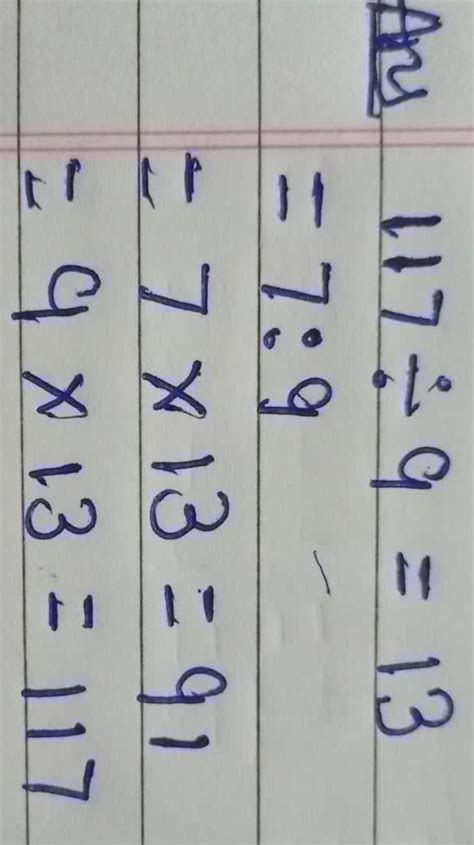 Ans
117 ÷ 9 = 13
= 7:9
= 7 × 13 = 91
= 9 × 13 = 117